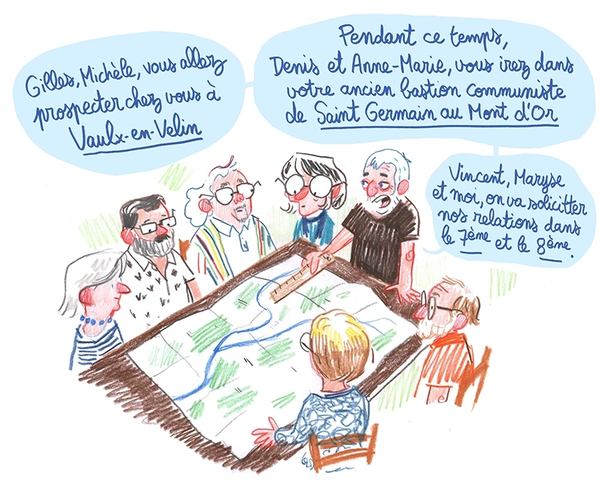 Gilles, Michèle, vous allez
prospecter chez vous à
Vaulx-en-Velin
Pendant ce temps,
Denis et Anne-Marie, vous irez dans
votre ancien bastion communiste
de Saint Germain au Mont d'Or
Vincent, Maryse
et moi, on va solicitter
nos relations dans
le 7ème et le 8ème.